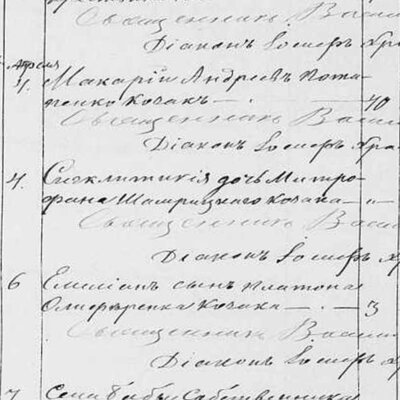 Священникъ Васи
Діаконъ Іосифъ Хра
Апреля
4. Макарій Андреевъ Пота
пенко козакъ — . — 40
Священникъ Васи
Діаконъ Іосифъ Хра
4. Синклитикія дочь Митро
фана козака — „ —
Священникъ Васи
Діаконъ Іосифъ Х
6 Емеліанъ сынъ Платона
козака — . — 3
Священникъ Васи
Діаконъ Іосифъ Хра
7